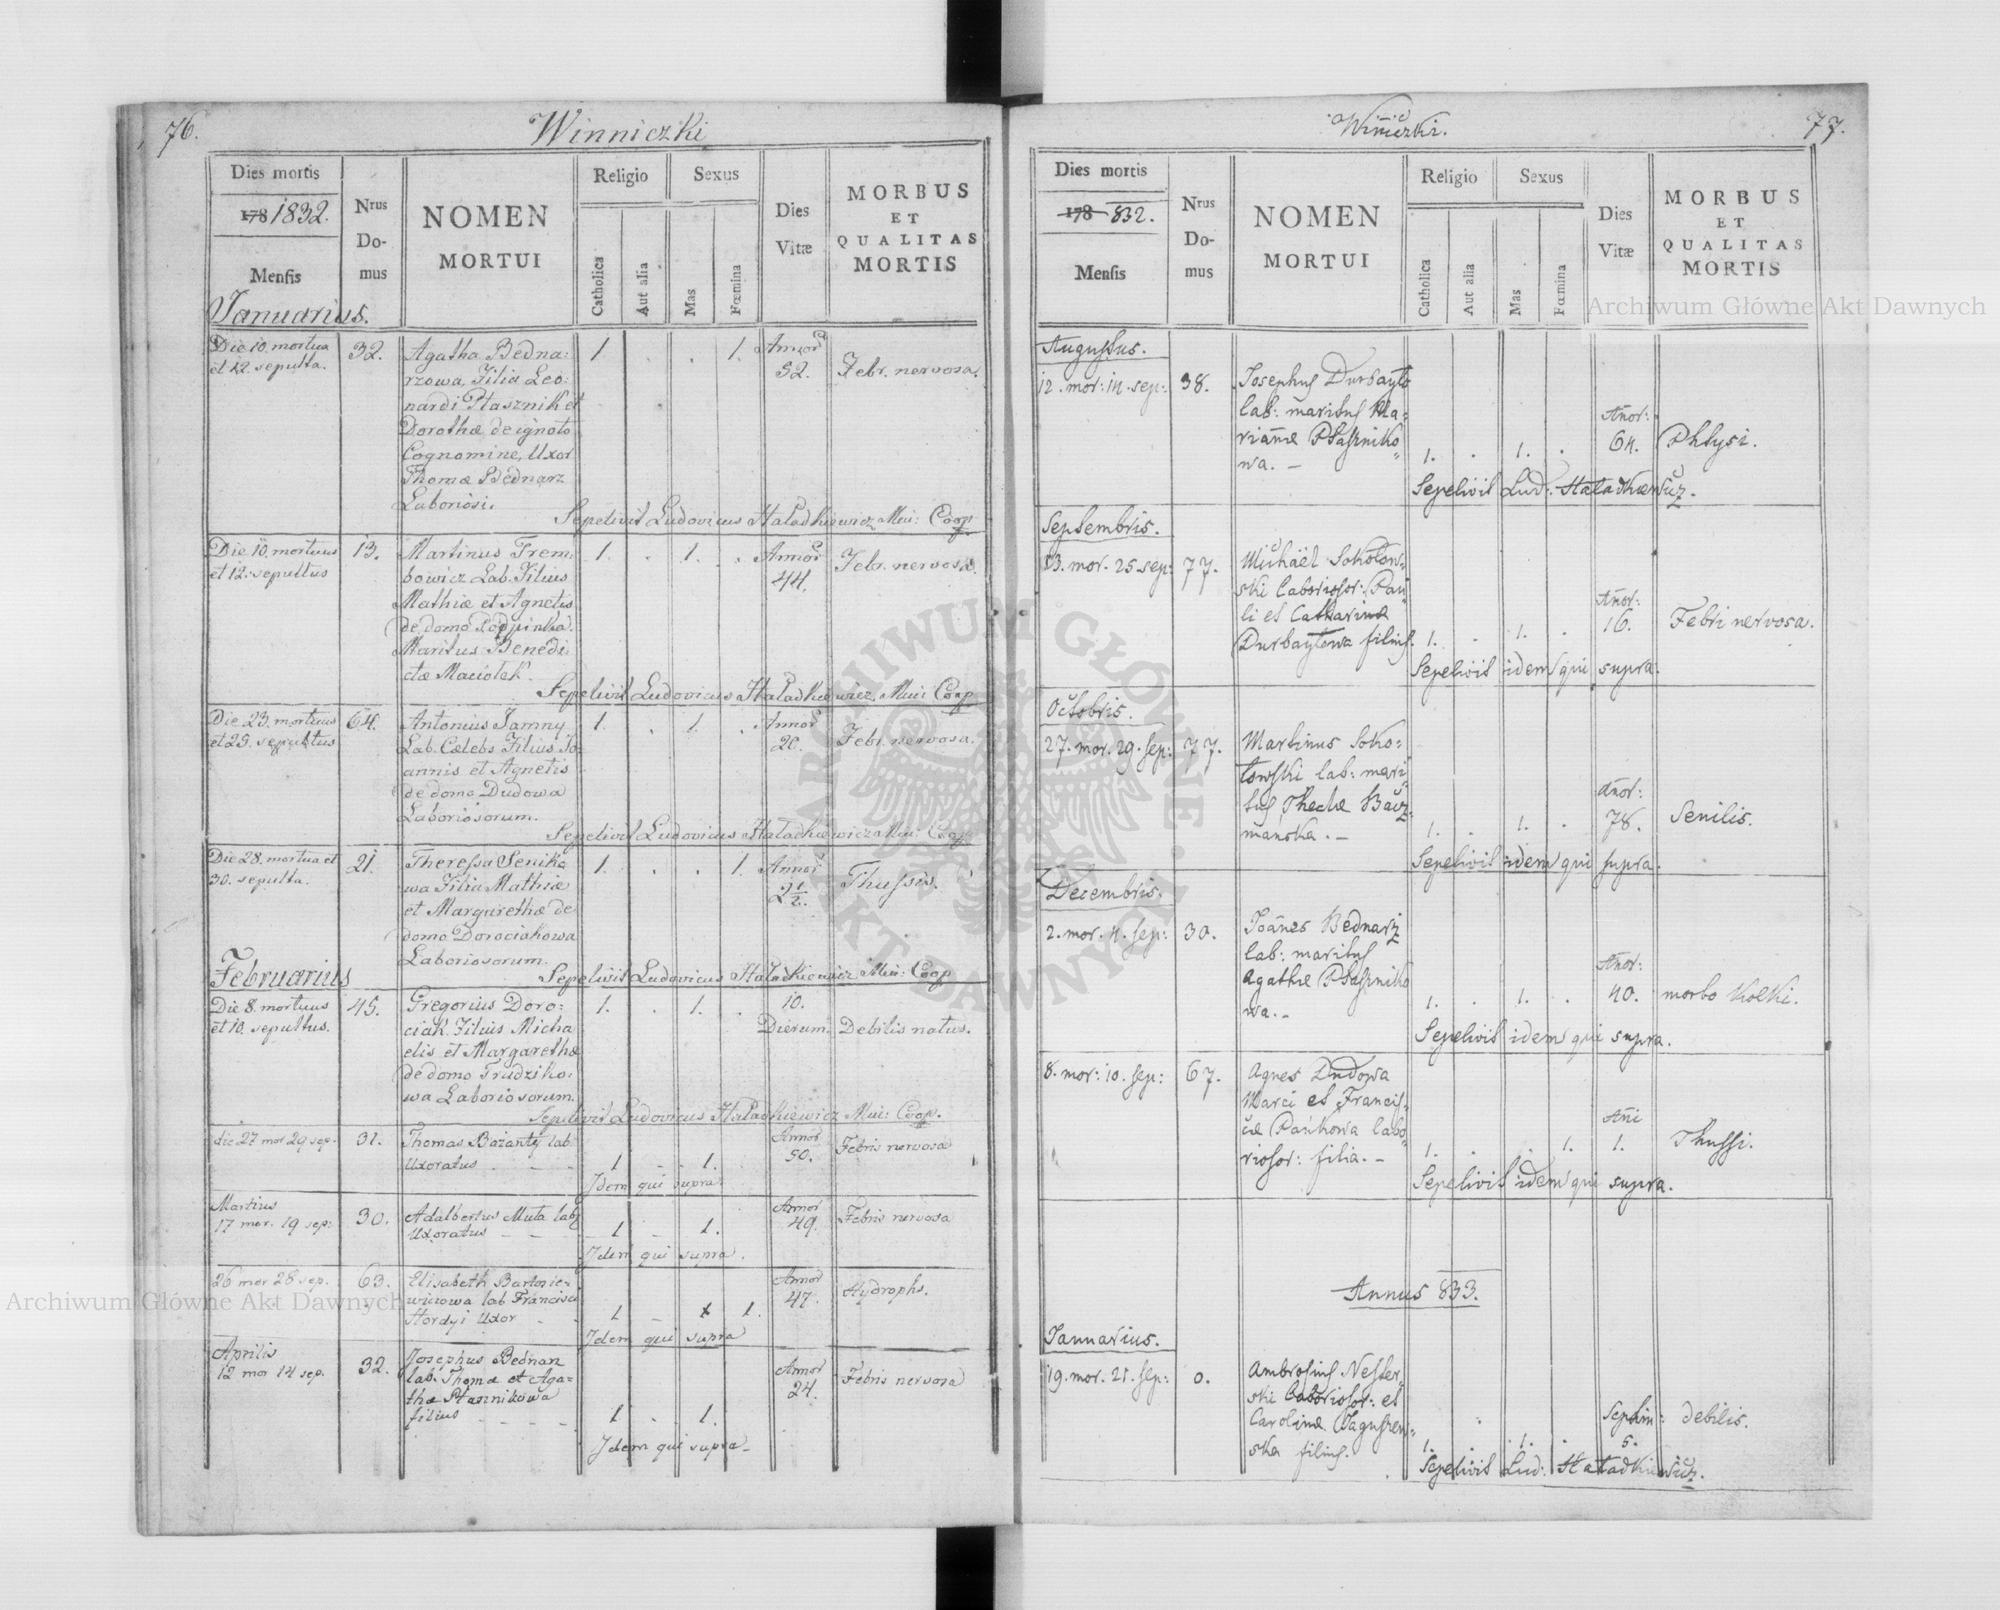 76.
Winniczki
Dies mortis
178 1832.
Mensis
Nrus
Do-
mus
NOMEN
MORTUI
Religio
Catholica
Aut alia
Sexus
Mas
Fœmina
Dies
Vitæ
MORBUS
ET
QUALITAS
MORTIS
Januarius.
Die 10. mortua
et 12. sepulta.
32.
Agatha Bedna:
rzowa, Filia Leo:
nardi Ptasznik et
Dorothæ de ignoto
Cognomine, Uxor
Thomæ Bednarz
Laboriosi.
1. . . 1.
Annor
52.
Febr. nervosa.
Sepelivit Ludovicus Haładkiewicz Mui: Coop
Die 10. mortuus
et 12. sepultus
13.
Martinus Trem:
bowicz Lab. Filius
Mathiæ et Agnetis
de domo
Maritus Benedi:
ctæ Maciołek.
1. . 1. .
Annor
44.
Febr. nervosa.
Sepelivit Ludovicus Haładkiewicz Mui: Coop
Die 23. mortuus
et 25. sepultus
64.
Antonius Jamny
Lab. Cælebs Filius Jo
annis et Agnetis
de domo Dudowa
Laboriosorum.
1. . 1. .
Annor
20.
Febr. nervosa.
Sepelivit Ludovicus Haładkiewicz Mui: Coop
Die 28. mortua et
30. sepulta.
21.
Theressa Seniko
wa Filia Mathiæ
et Margarethæ de
domo Dorociakowa
Laboriosorum.
1. . . 1.
Annor
2 1/2.
Thussis.
Sepelivit Ludovicus Haładkiewicz Mui: Coop
Februarius
Die 8. mortuus
et 10. sepultus.
45.
Gregorius Doro:
ciak. Filius Micha
elis et Margarethæ
de domo Trudziko:
wa Laboriosorum.
1. . 1. .
10.
Dierum.
Debilis natus.
Sepelivit Ludovicus Haładkiewicz Mui: Coop.
die 27 mor 29 sep.
31.
Thomas Bażanty lab
Uxoratus - - -
1 - . 1.
Annor
50.
Febris nervosa
Idem qui supra
Martius
17 mor. 19 sep:
30.
Adalbertus Muta lab
Uxoratus - - -
1 - 1.
Annor
49.
Febris nervosa
Idem qui supra.
26 mor 28 sep.
63.
Elisabeth Bartosie-
wiczowa lab Francisci
Hordyi Uxor - -
1 - 1.
Annor
47.
Hydrophs.
Idem qui supra
Aprilis
12 mor 14 sep.
32.
Josephus Bednarz
lab. Thomæ et Aga-
thæ Ptasznikowa
filius - - - -
1 - . 1.
Annor
24.
Febris nervosa
Idem qui supra-
Winiczki.
77.
Dies mortis
178 832.
Mensis
Nrus
Do-
mus
NOMEN
MORTUI
Religio
Catholica
Aut alia
Sexus
Mas
Fœmina
Dies
Vitæ
MORBUS
ET
QUALITAS
MORTIS
Augustus.
12. mor: 14. sep:
38.
Josephus Durbayło
lab: maritus Ma-
rianæ Ptaszniko
wa. -
1. . 1. .
Anor:
64.
Phtysi.
Sepelivit Lud: Haładkiewicz.
Septembris.
23. mor. 25. sep:
77.
Michäel Sokołow-
ski laboriosor: Pau-
li et Catharinæ
Durbaytowa filius.
1. . 1. .
Anor:
16.
Febri nervosa.
Sepelivit idem qui supra.
Octobris.
27. mor. 29. sep:
77.
Martinus Soko:
łowski lab: mari-
tus Theclæ Bacz-
mańska. -
1. . 1. .
Anor:
78.
Senilis.
Sepelivit idem qui supra.
Decembris.
2. mor. 4. sep:
30.
Joänes Bednarz
lab: maritus
Agathæ Ptaszniko
wa. -
1. . 1. .
Anor:
40.
morbo Kolki.
Sepelivit idem qui supra.
8. mor: 10. sep:
67.
Agnes Dudowa
Marci et Francis-
cæ Pankowa labo-
riosor: filia. -
1. . . 1.
Ani
1.
Thussi.
Sepelivit idem qui supra.
Annus 833.
Januarius.
19. mor. 21. sep:
0.
Ambrosius Nester-
ski laboriosor: et
Carolinæ
ska filius.
1. . 1. .
Septim:
5.
debilis.
Sepelivit Lud: Haładkiewicz.
Archiwum Główne Akt Dawnych
Archiwum Główne Akt Dawnych
ARCHIWUM GŁÓWNE • AKT DAWNYCH •